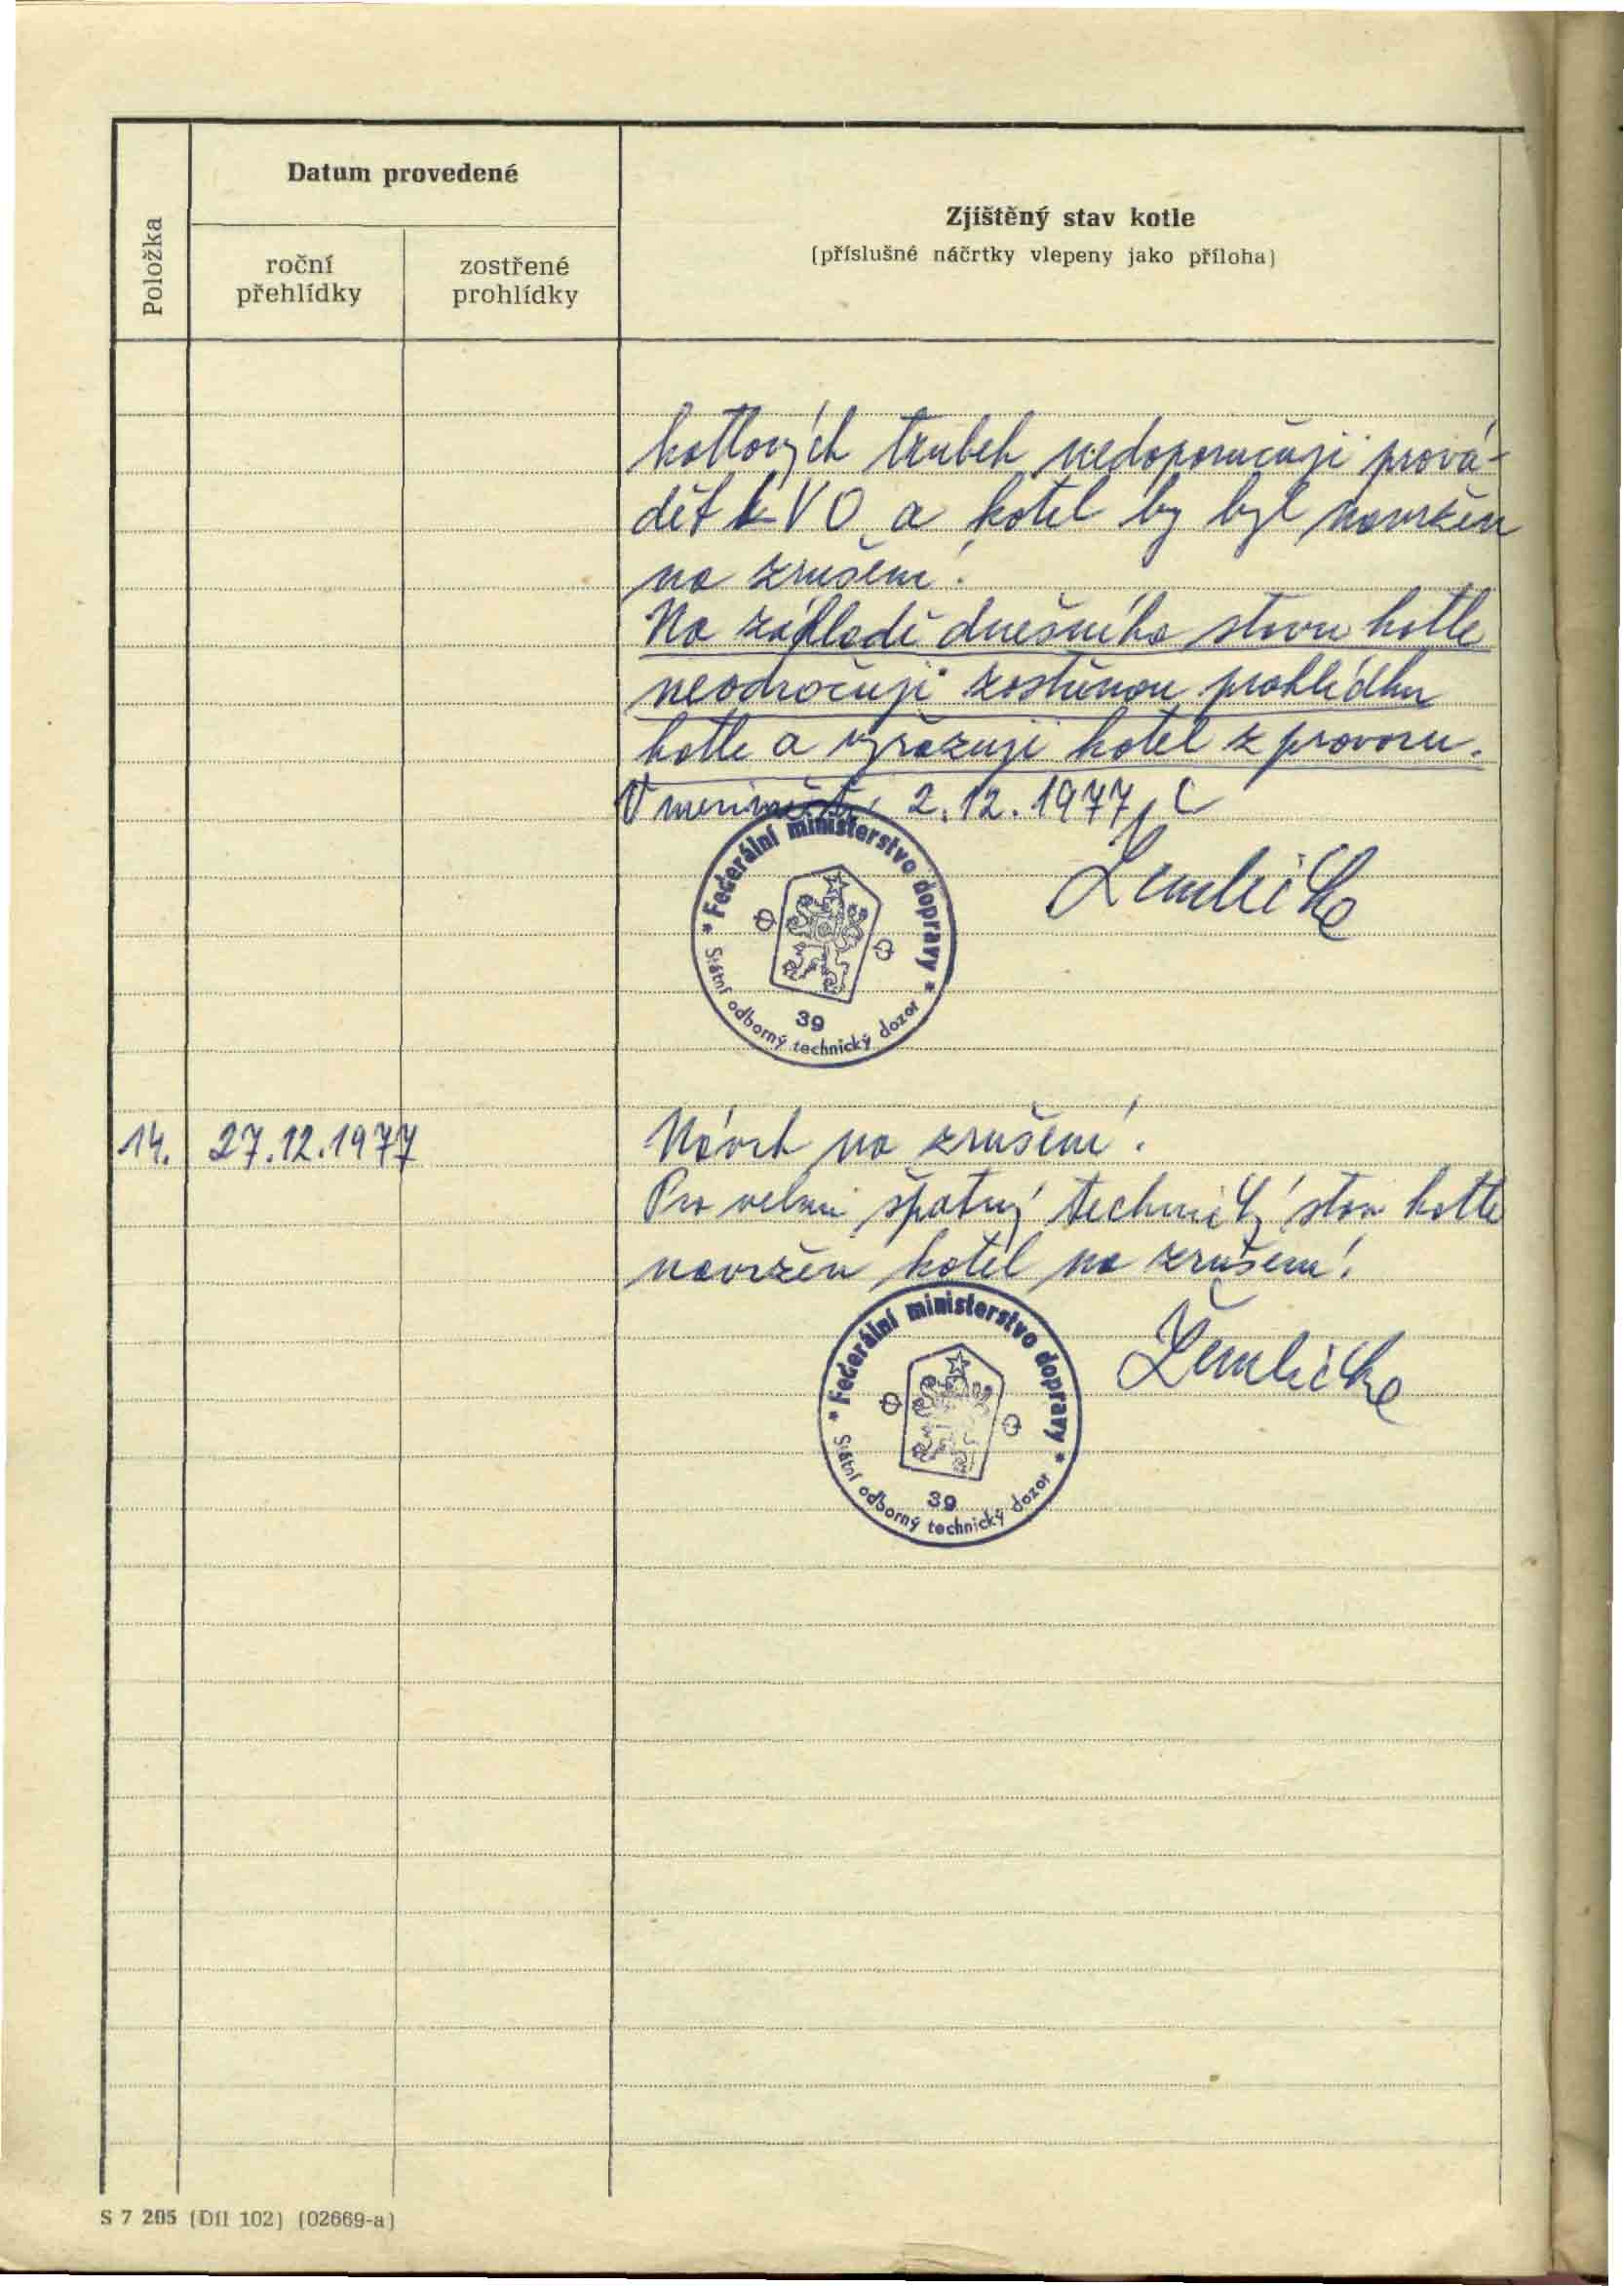 Položka
Datum provedené
roční
přehlídky
zostřené
prohlídky
Zjištěný stav kotle
(příslušné náčrtky vlepeny jako příloha)
kotlových trubek nedoporučuji prová-
dět VO a kotel by byl navržen
na zrušení.
Na základě dnešního stavu kotle
neodročuji zostřenou prohlídku
kotle a vyřazuji kotel z provozu.
V 2.12.1977
Žemlička
* Federální ministerstvo dopravy *
39
Státní odborný technický dozor
14. 27.12.1977 Návrh na zrušení.
Pro velmi špatný technický stav kotle
navržen kotel na zrušení!
Žemlička
* Federální ministerstvo dopravy *
39
Státní odborný technický dozor
S 7 205 (Díl 102) (02669-a)